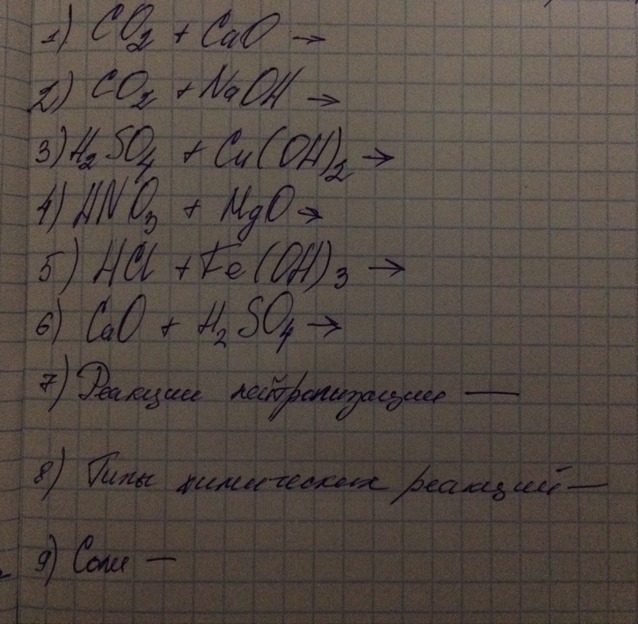 1) CO₂ + CaO →
2) CO₂ + NaOH →
3) H₂SO₄ + Cu(OH)₂ →
4) HNO₃ + MgO →
5) HCl + Fe(OH)₃ →
6) CaO + H₂SO₄ →
7) Реакции нейтрализации —
8) Типы химических реакций —
9) Соли —